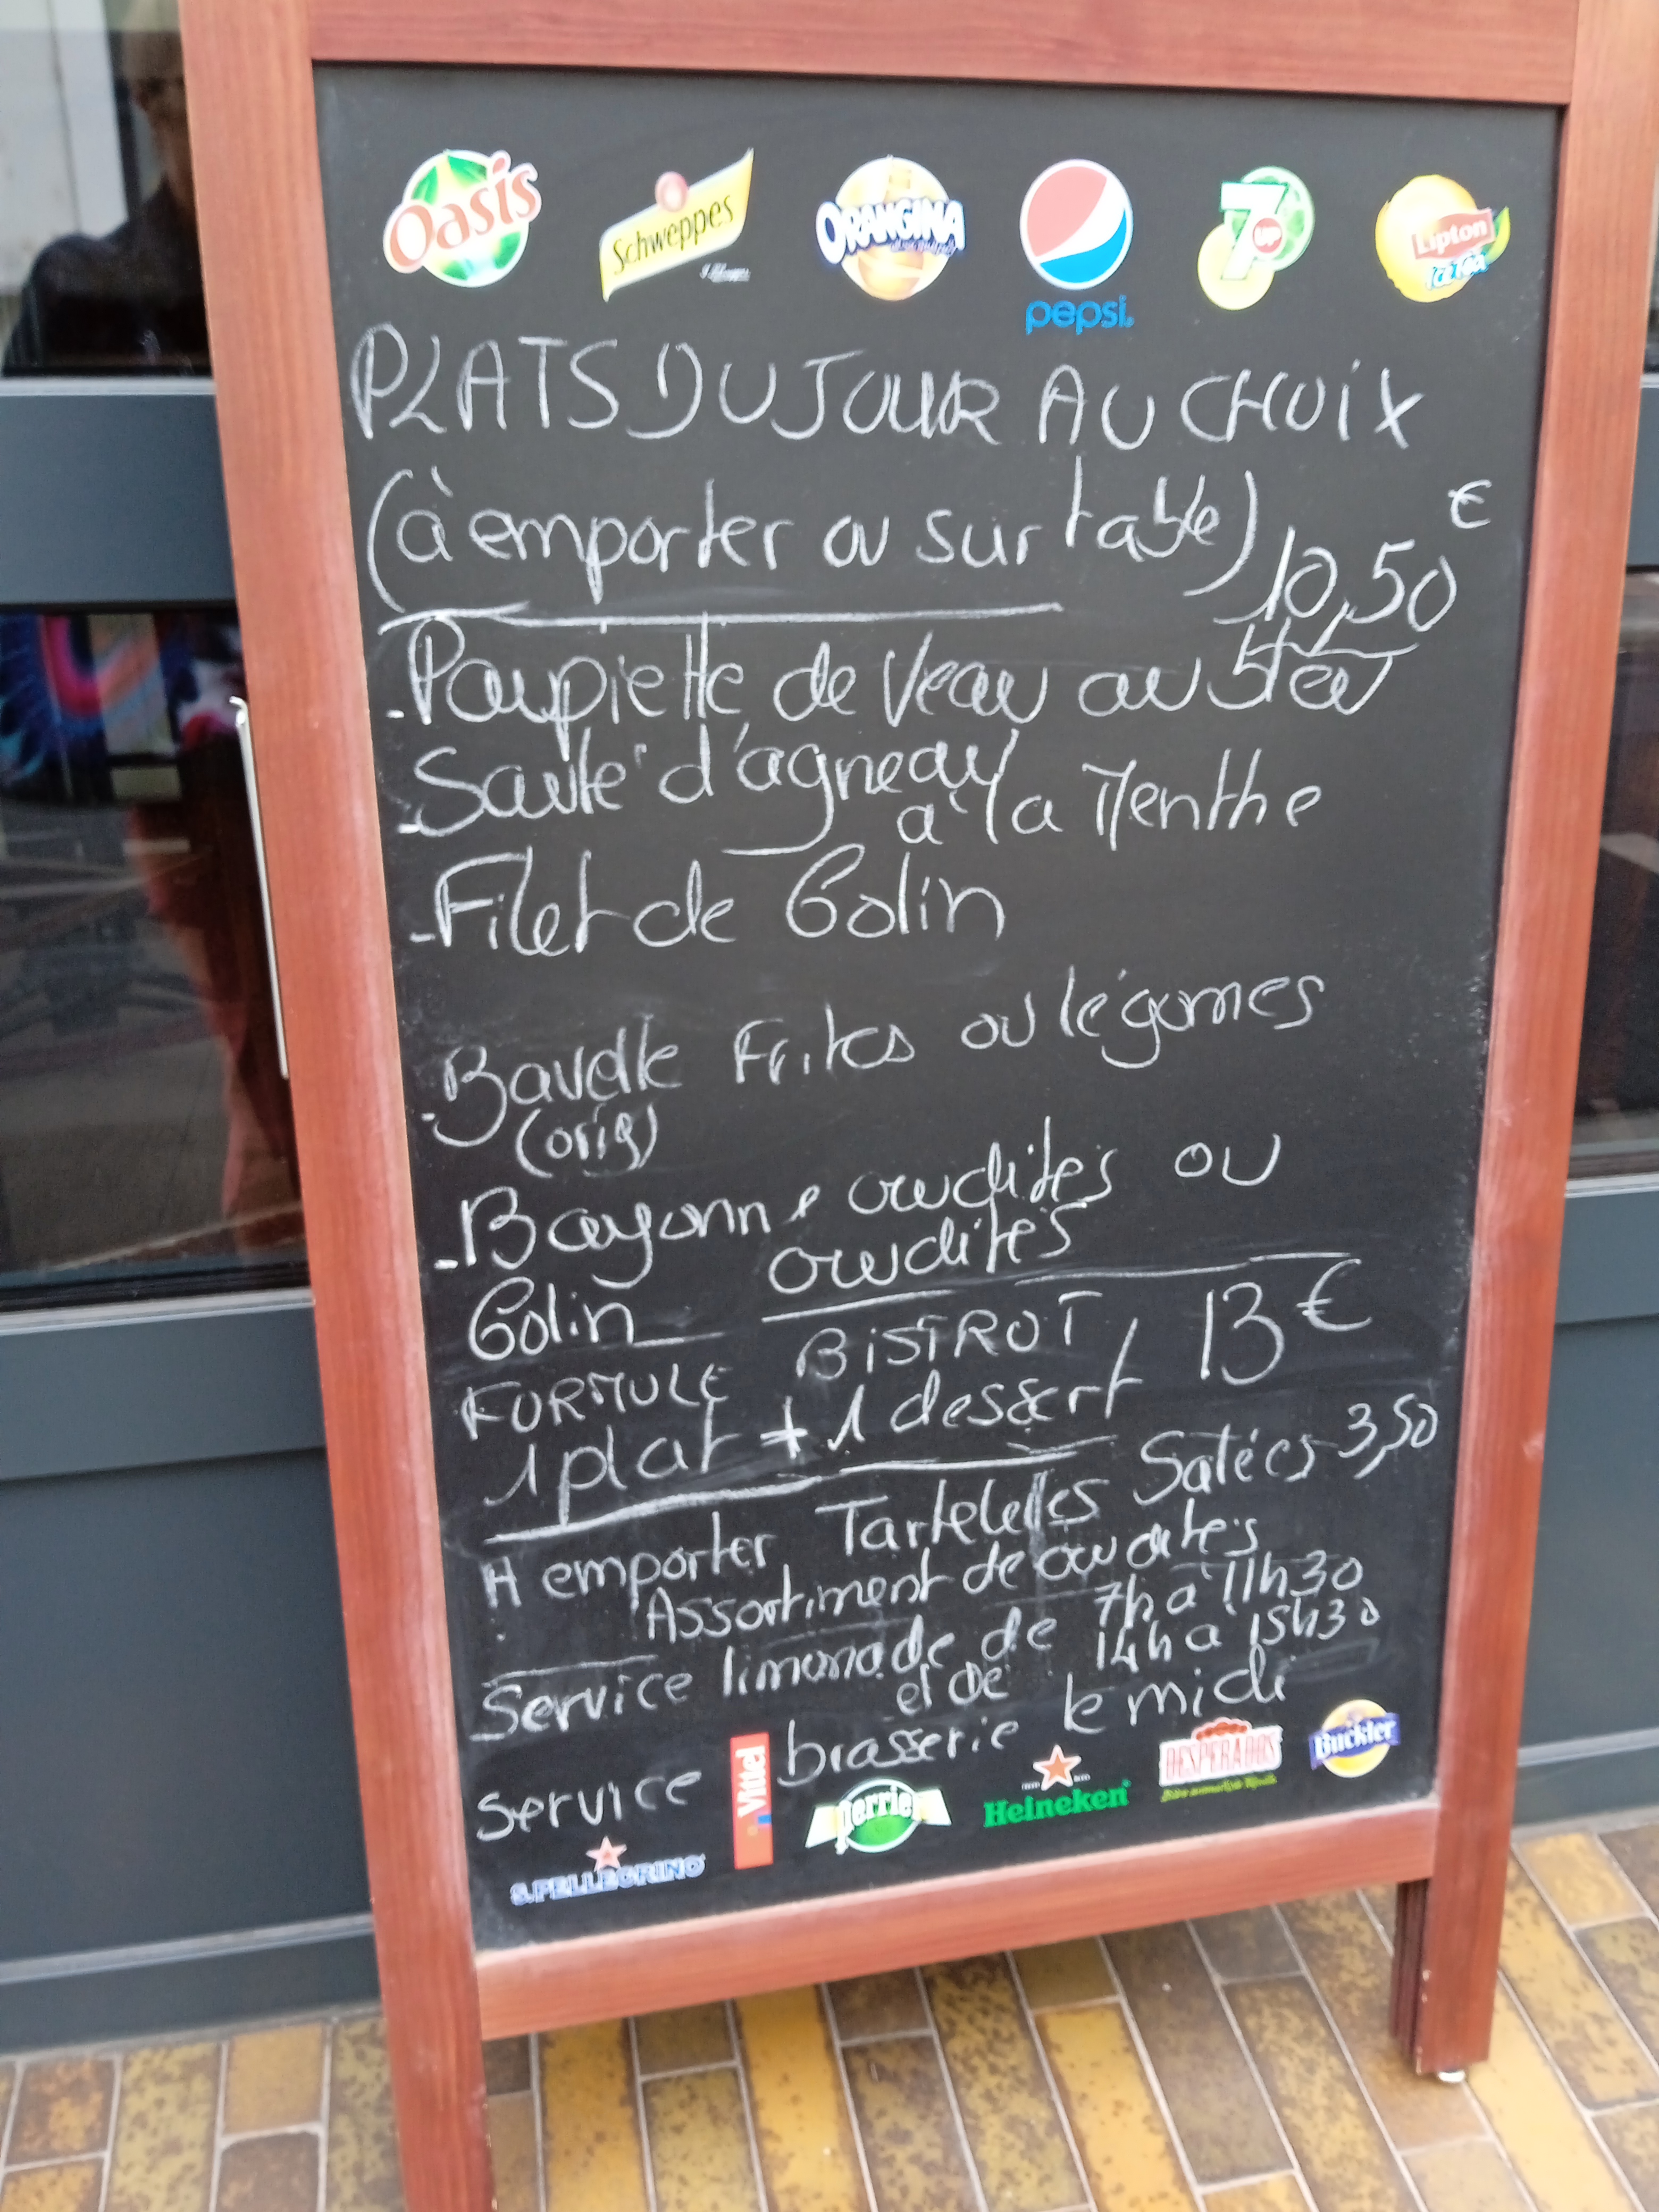 Oasis Schweppes ORANGINA pepsi. 7up Lipton Ice Tea
PLATS DU JOUR AU CHOIX
(à emporter ou sur table) 10,50 €
- Paupiette de Veau au
- Sauté d'agneau
à la Menthe
- Filet de Colin
- Bavette Frites ou légumes
(orig)
- Bayonne crudités ou
Colin crudités
FORMULE BISTROT
1 plat + 1 dessert / 13 €
A emporter Tartelettes Salées 3,50
Assortiment de crudités
Service limonade de 7h à 11h30
et de 14h à 15h30
Service brasserie le midi
S.PELLEGRINO Vittel perrier Heineken DESPERADOS Buckler